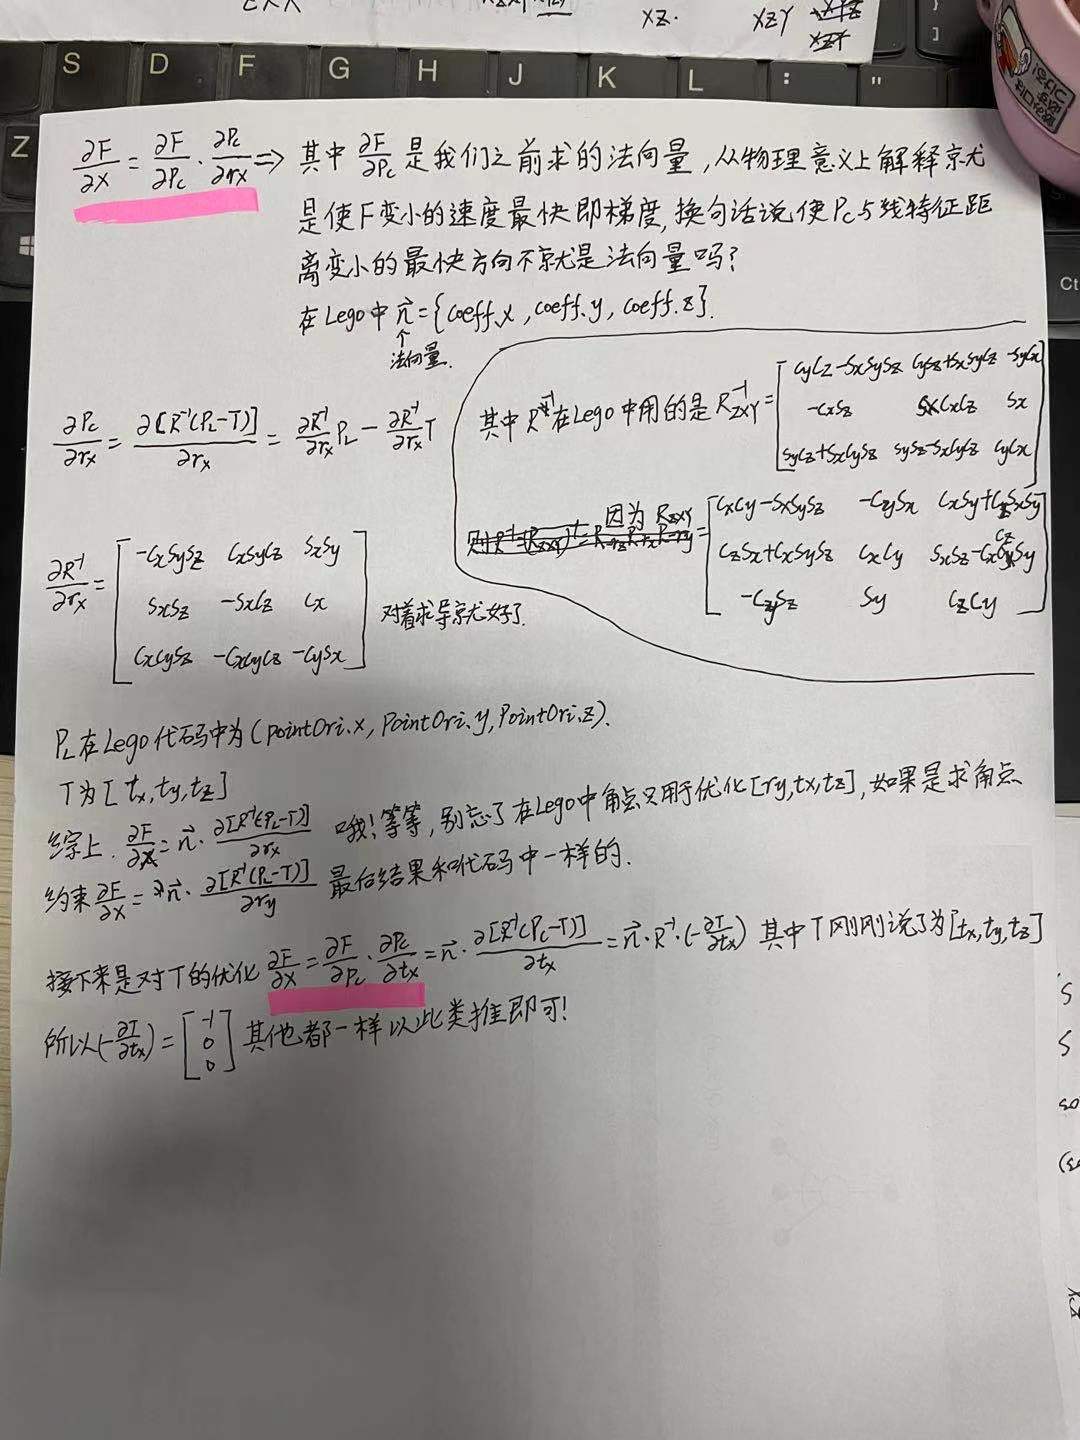 XZ.
XZY
S D F G H J K L : "
Z
Ctrl
∂F/∂X = ∂F/∂Pc · ∂Pc/∂rx ⇒ 其中 ∂F/∂Pc 是我们之前求的法向量,从物理意义上解释就
是使F变小的速度最快即梯度,换句话说使Pc与线特征距
离变小的最快方向不就是法向量吗?
在Lego中 n⃗={coeff.x, coeff.y, coeff.z}.
↑
法向量.
∂Pc/∂rx = ∂[R⁻¹(PL-T)]/∂rx = ∂R⁻¹/∂rx PL - ∂R⁻¹/∂rx T
其中R⁻¹在Lego中用的是 R⁻¹ZXY =
[ CyCz-SxSySz CySz+SxSyCz -SyCx
-CxSz CxCz Sx
SyCz+SxCySz SySz-SxCyCz CyCx ]
因为 RZXY =
[ CxCy-SxSySz -CzSx CxSy+CySxSz
CzSx+CxSySz CxCy SxSz-CxCzSy
-CySz Sy CzCy ]
∂R⁻¹/∂rx =
[ -CxSySz CxSyCz SxSy
SxSz -SxCz Cx
CxCySz -CxCyCz -CySx ]
对着求导就好了.
PL在Lego代码中为(pointOri.x, pointOri.y, pointOri.z).
T为[tx,ty,tz]
综上. ∂F/∂X = n⃗ · ∂[R⁻¹(PL-T)]/∂rx 哦!等等,别忘了在Lego中角点只用于优化[ry,tx,tz],如果是求角点
约束 ∂F/∂X = n⃗ · ∂[R⁻¹(PL-T)]/∂ry 最后结果和代码中一样的.
接下来是对T的优化 ∂F/∂X = ∂F/∂Pc · ∂Pc/∂tx = n⃗ · ∂[R⁻¹(PL-T)]/∂tx = n⃗ · R⁻¹ · (-∂T/∂tx) 其中T刚刚说了为[tx,ty,tz]
所以(-∂T/∂tx) = [-1 0 0] 其他都一样以此类推即可!